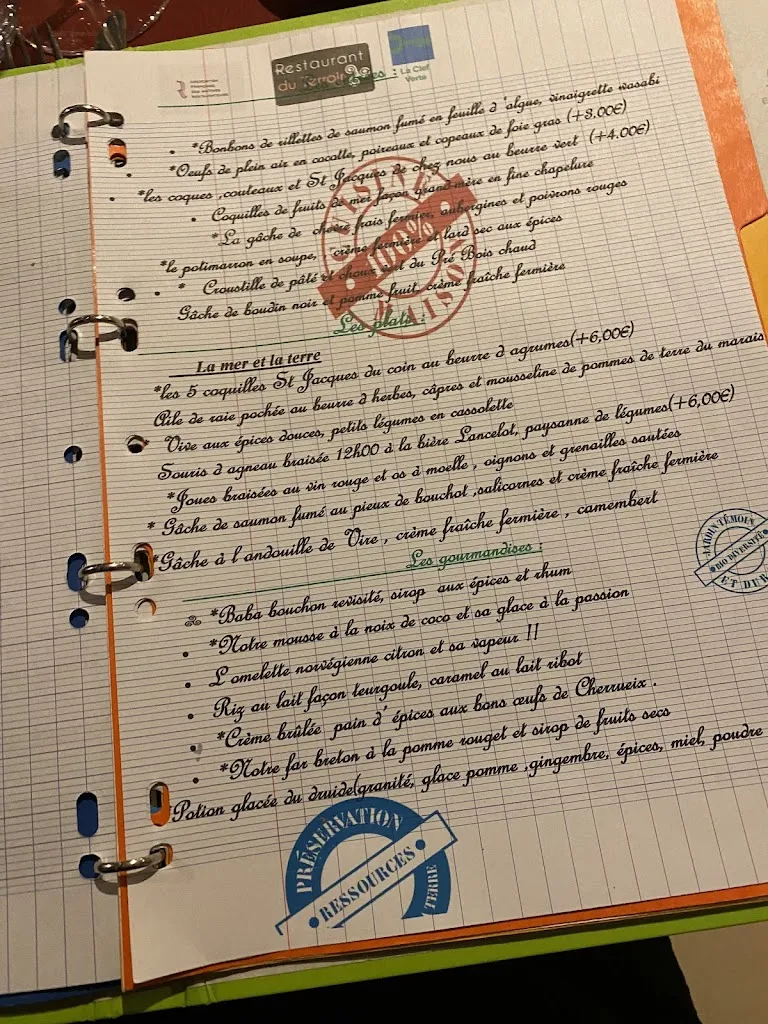 Restaurant
du Terroir
La Clef
Verte
*Bonbons de rillettes de saumon fumé en feuille d'algue, vinaigrette wasabi
*Oeufs de plein air en cocotte, poireaux et copeaux de foie gras (+3,00€)
*les coques ,couteaux et St Jacques de chez nous au beurre vert (+4,00€)
Coquilles de fruits de mer façon grand-mère en fine chapelure
*La gâche de chèvre frais fermier, aubergines et poivrons rouges
*le potimarron en soupe, crème fermière et lard sec aux épices
* Croustille de pâté et choux vert du Pré Bois chaud
Gâche de boudin noir et pomme fruit, crème fraîche fermière
CUISINE
100%
MAISON
Les plats :
La mer et la terre
*les 5 coquilles St Jacques du coin au beurre d agrumes(+6,00€)
Aile de raie pochée au beurre d herbes, câpres et mousseline de pommes de terre du marais
Vive aux épices douces, petits légumes en cassolette
Souris d agneau braisée 12h00 à la bière Lancelot, paysanne de légumes(+6,00€)
*Joues braisées au vin rouge et os à moelle , oignons et grenailles sautées
* Gâche de saumon fumé au pieux de bouchot ,salicornes et crème fraîche fermière
*Gâche à l andouille de Vire , crème fraîche fermière , camembert
JARDIN TÉMOIN
BIO DIVERSITÉ
ET DUR
Les gourmandises :
*Baba bouchon revisité, sirop aux épices et rhum
*Notre mousse à la noix de coco et sa glace à la passion
L omelette norvégienne citron et sa vapeur !!
Riz au lait façon teurgoule, caramel au lait ribot
*Crème brûlée pain d' épices aux bons œufs de Cherrueix .
*Notre far breton à la pomme rouget et sirop de fruits secs
Potion glacée du druide(granité, glace pomme ,gingembre, épices, miel, poudre
PRÉSERVATION
RESSOURCES
TERRE